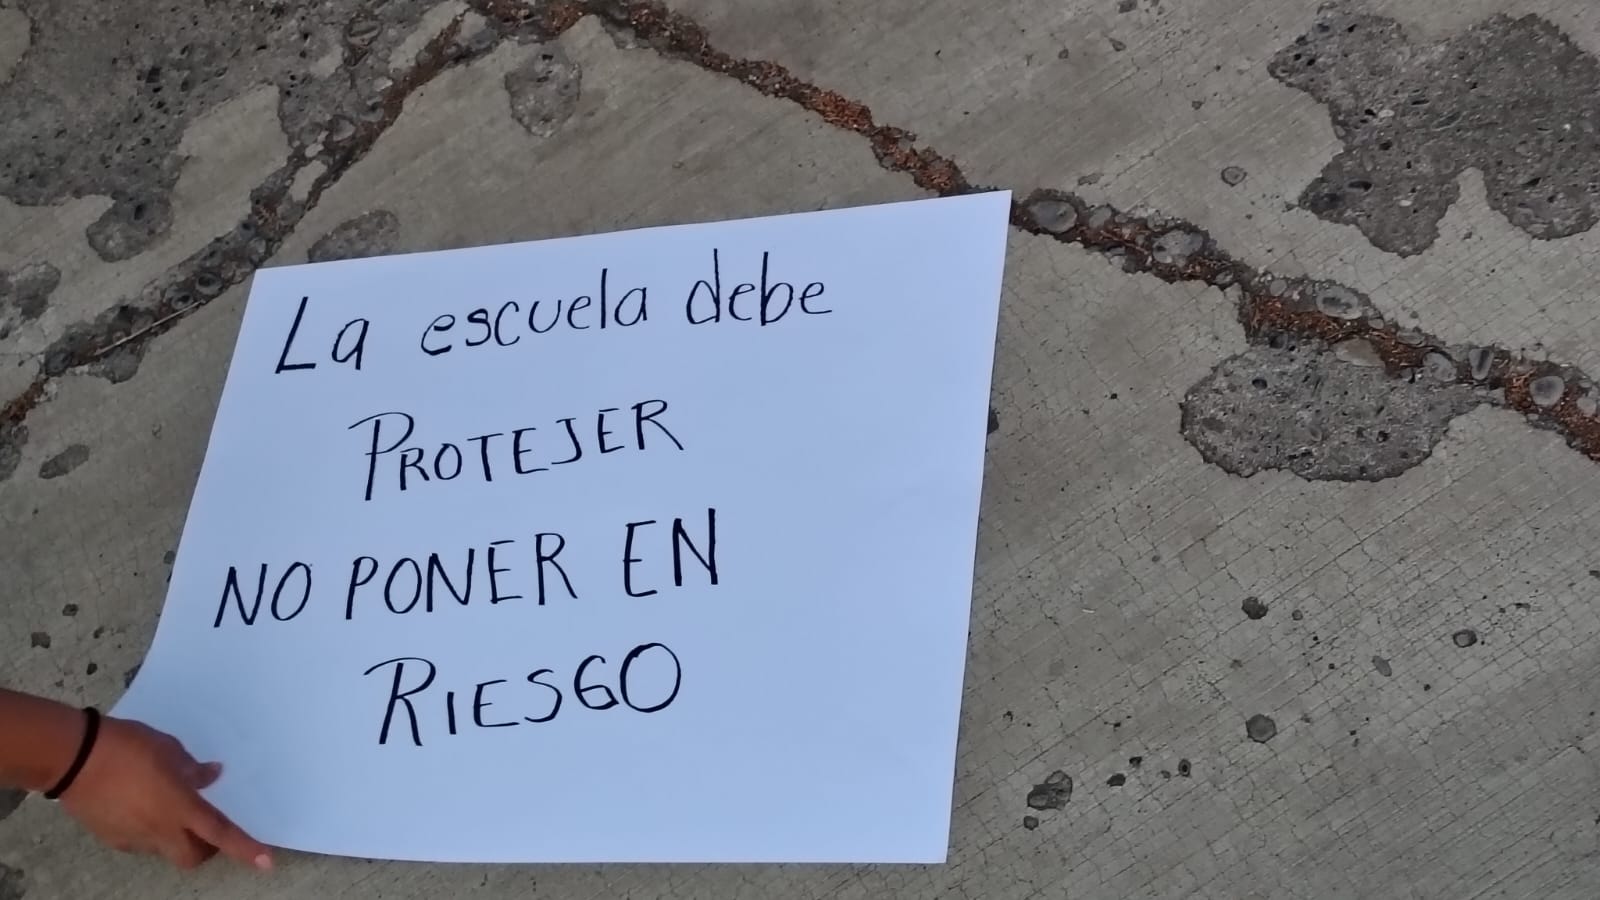 La escuela debe
PROTEJER
NO PONER EN
RIESGO